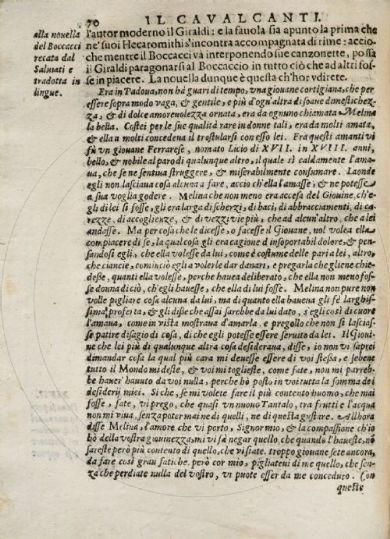 70 IL CAVALCANTI.
alla nouella
del Boccacci
recata dal
Saluiati e
tradotta in
lingue.
l'autor moderno il Giraldi: e la fauola sia apunto la prima che
ne' suoi Hecatomithi s'incontra accompagnata di rime: accio-
che mentre il Boccacci va interponendo sue canzonette, possa
il Giraldi paragonarsi al Boccaccio in tutto ciò che ad altri fos-
se in piacere. La nouella dunque è questa ch'hor vdirete.
Era in Padoua, non hà guari di tempo, vna giouane cortigiana, che per
essere sopra modo vaga, & gentile, e più d'ogn'altra di soaue domestichez-
za, & di dolce amoreuolezza ornata, era da ognuno chiamata Melina
la bella. Costei per le sue qualità rare in donne tali, era da molti amata,
& ella a molti concedeua il trastullarsi con esso lei. Fra questi amanti vi
fù vn giouane Ferrarese, nomato Licio di XVII. in XVIII. anni,
bello, & nobile al paro di qualunque altro, il quale sì caldamente l'ama-
ua, che se ne sentiua struggere, & miserabilmente consumare. Laonde
egli non lasciaua cosa alcuna a fare, accio ch'ella l'amasse, & ne potesse
a sua voglia godere. Melina che non meno era accesa del Giouine, ch'e-
gli di lei si fosse, gli era larga di scherzi, di baci, di abbracciamenti, di ca-
rezze, di accoglienze, & di vezzi vie più, che ad alcun'altro, che a lei
andasse. Ma per cosa che le dicesse, o facesse il Giouane, nol volea ella
compiacere di se, la qual cosa gli era cagione d'insoportabil dolore, & pen-
sandosi egli, che ella volesse da lui, come è costume delle pari a lei, altro,
che ciancie, cominciò egli a volerle dar denari, e pregarla che gliene chie-
desse, quanti ella volesse, perche hauea deliberato, che ella non meno fos-
se donna di ciò, ch'egli hauesse, che ella di lui fosse. Melina non pure non
volle pigliare cosa alcuna da lui, ma di quanto ella hauea gli fè larghis-
sima proferta, & gli disse che assai sarebbe da lui dato, s'egli così di cuore
l'amaua, come in vista mostraua d'amarla. e pregollo che non si lascias-
se patire disagio di cosa, di che egli potesse essere seruito da lei. Il Gioui-
ne che lei più di qualunque altra cosa desideraua, disse, io non vi saprei
dimandar cosa la qual più cara mi deuesse essere di voi stessa, e sebene
tutto il Mondo mi deste, & voi mi toglieste, come fate, non mi parreb-
be hauer' hauuto da voi nulla, perche hò posto in voi tutta la somma dei
desiderij miei. Si che, se mi volete fare il più contento huomo, che mai
fosse, fate, vi prego, che quasi vn nouo Tantalo, tra frutti e l'acqua
non mi viua, senza poter mai ne di quelli, ne di questa gustare. Allhora
disse Melina, l'amore che vi porto, Signor mio, & la compassione ch'io
hò della vostra giouinezza, mi vi fà negar quello, che quando l'haueste, nò
sareste però più contento di quello, che vi siate. troppo giouane sete ancora,
da fare così grau fatiche. però cor mio, pigliateui di me quello, che sen-
za che perdiate nulla del vostro, vi puote esser da me conceduto. Con
queste